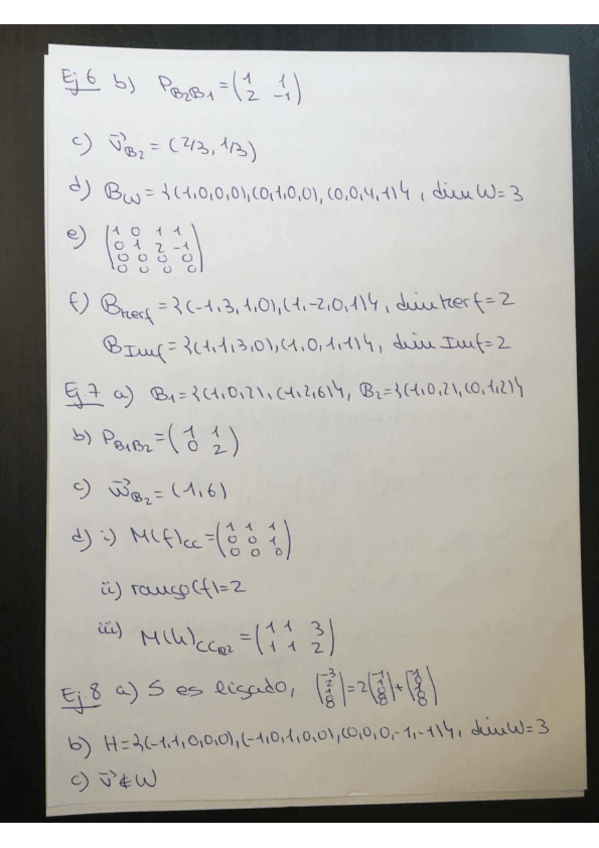 Ej 6 b) P_{B2B1} = (1 1; 2 -1)
c) v⃗_{B2} = (2/3, 1/3)
d) B_W = {(1,0,0,0),(0,1,0,0),(0,0,4,1)}, dim W = 3
e) (1 0 1 1; 0 1 2 -1; 0 0 0 0; 0 0 0 0)
f) B_{Kerf} = {(-1,3,1,0),(1,-2,0,1)}, dim Kerf = 2
B_{Imf} = {(1,1,3,0),(1,0,1,1)}, dim Imf = 2
Ej. 7 a) B1 = {(1,0,2),(1,2,6)}, B2 = {(1,0,2),(0,1,2)}
b) P_{B1B2} = (1 1; 0 2)
c) w⃗_{B2} = (1,6)
d) i) M(f)_{CC} = (1 1 1; 0 0 1; 0 0 0)
ii) rango(f) = 2
iii) M(h)_{CC_{R2}} = (1 1 3; 1 1 2)
Ej 8 a) S es ligado,
b) H = {(-1,1,0,0,0),(-1,0,1,0,0),(0,0,0,-1,-1)}, dim W = 3
c) v⃗ ∉ W